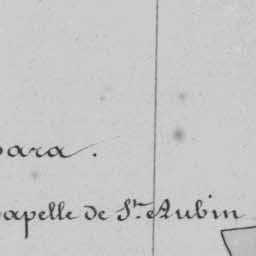 para.
apelle de St. Aubin